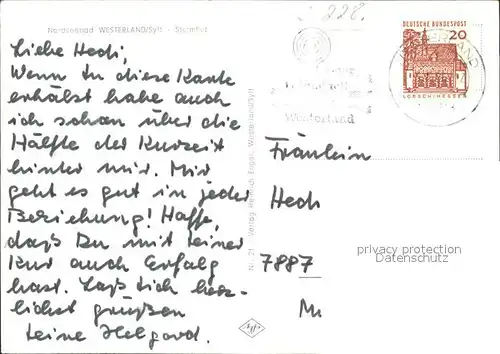 Nordseebad WESTERLAND/Sylt - Sturmflut
Liebe Hedi,
Wenn Du diese Karte
erhälst habe auch
ich schon über die
Hälfte der Kurzeit
hinter mir. Mir
geht es gut in jeder
Beziehung! Hoffe,
daß Du mit Deiner
Kur auch Erfolg
hast. Laß Dich herz-
lichst grüßen
Deine Helgard.
DEUTSCHE BUNDESPOST
20
LORSCH/HESSEN
Westerland
Fräulein
Hedi
7887
privacy protection
Datenschutz
Nr. 21 Verlag Heinrich Engel, Westerland/Sylt